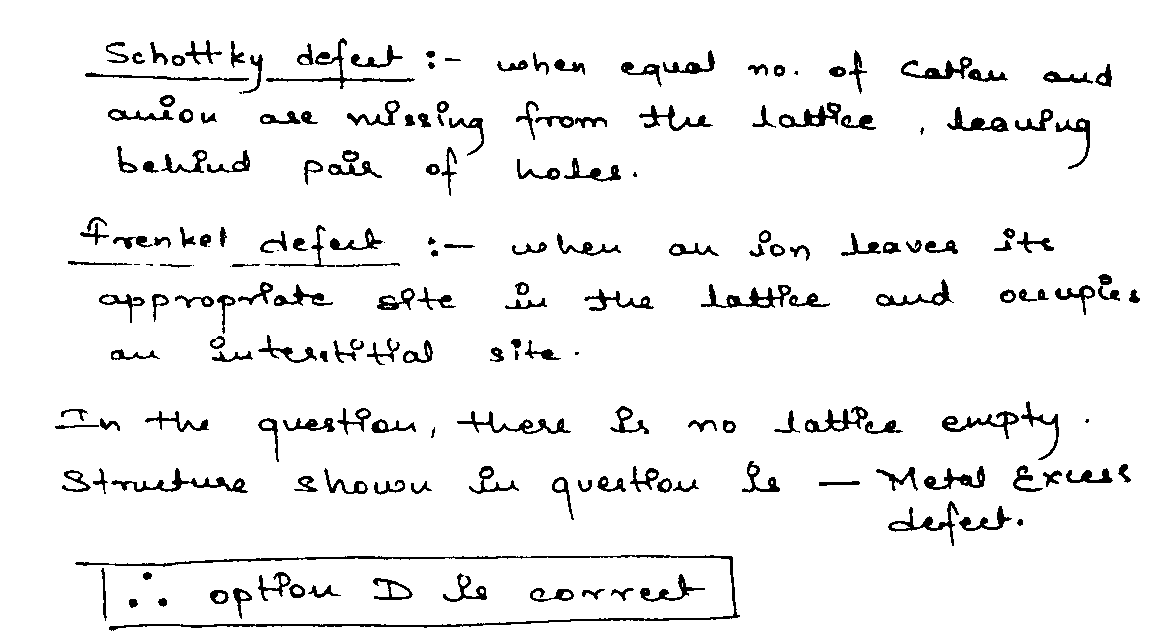 Schottky defect :- when equal no. of cation and
anion are missing from the lattice , leaving
behind pair of holes.
frenkel defect :- when an ion leaves its
appropriate site in the lattice and occupies
an interstitial site.
In the question, there is no lattice empty.
Structure shown in question is - Metal Excess
defect.
∴ option D is correct